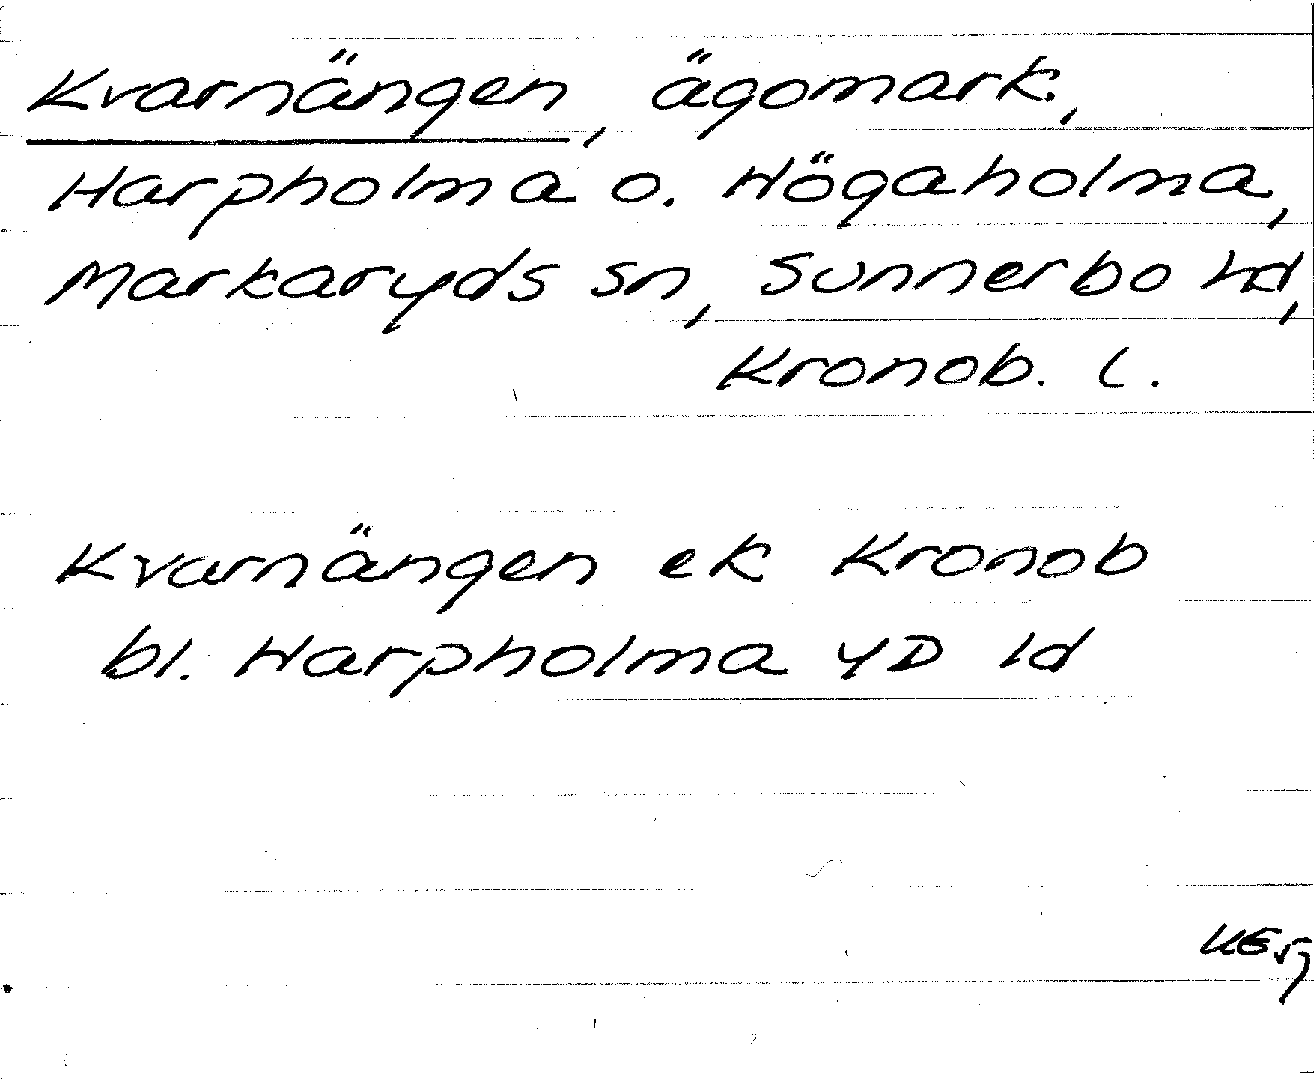 Kvarnängen, ägomark,
Harpholma o. Högaholma,
Markaryds sn, Sunnerbo hd,
Kronob. l.
Kvarnängen ek Kronob
bl. Harpholma YD 1d